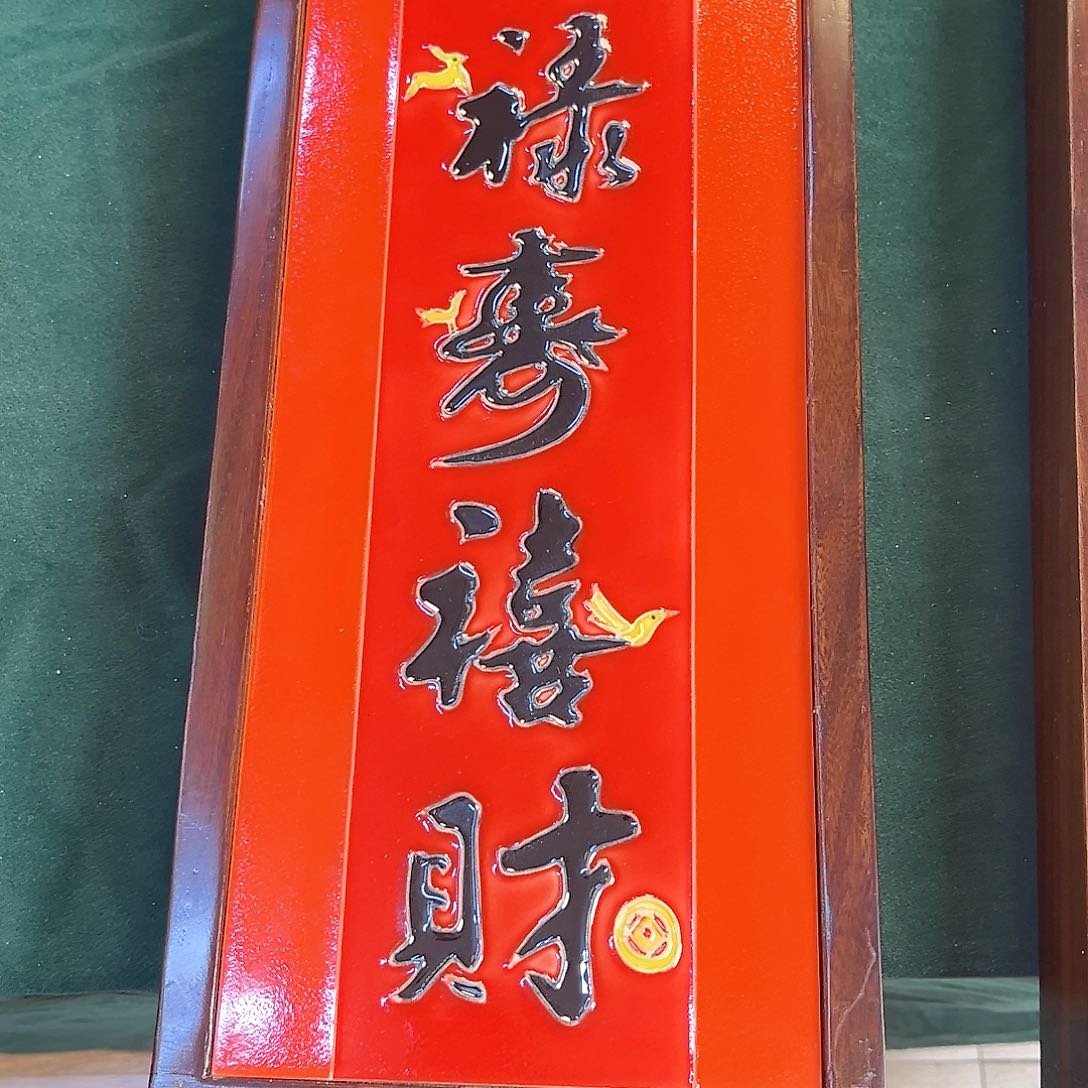 祿壽禧財